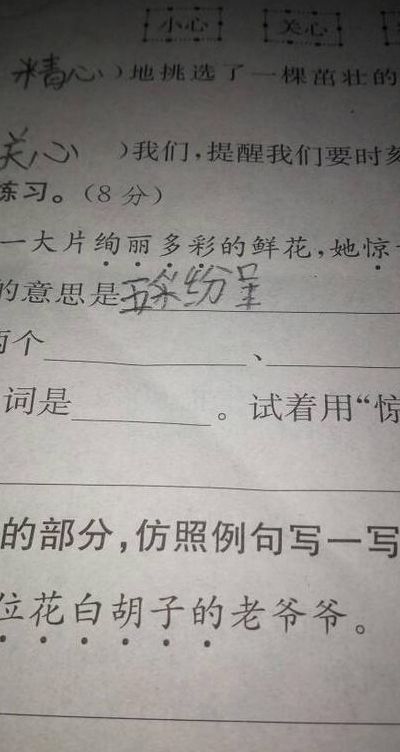 小心 关心
精心)地挑选了一棵茁壮的
关心 )我们,提醒我们要时刻
练习。(8分)
一大片绚丽多彩的鲜花,她惊
的意思是五彩纷呈
两个 、
词是 。试着用“惊
的部分,仿照例句写一写
位花白胡子的老爷爷。